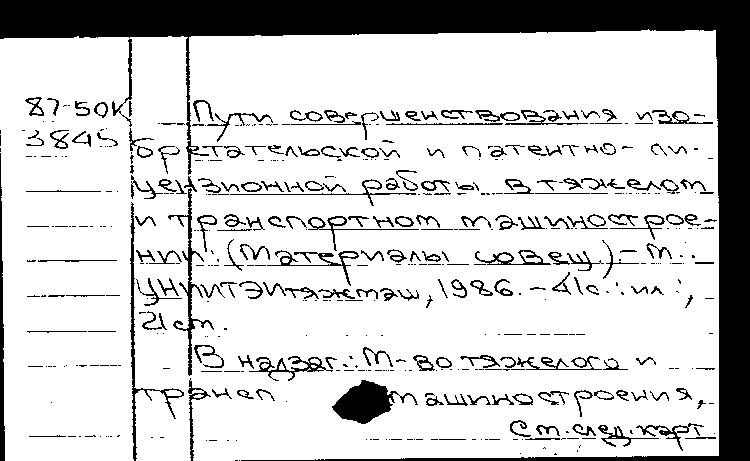 87-50К
3845
Пути совершенствования изо-
бретательской и патентно-ли-
цензионной работы в тяжелом
и транспортном машинострое-
нии: (Материалы совещ.) - М.:
ЦНИИТЭИтяжмаш, 1986. - 41 с.: ил.;
21 см.
В надзаг.: М-во тяжелого и
трансп. машиностроения,
См. след. карт